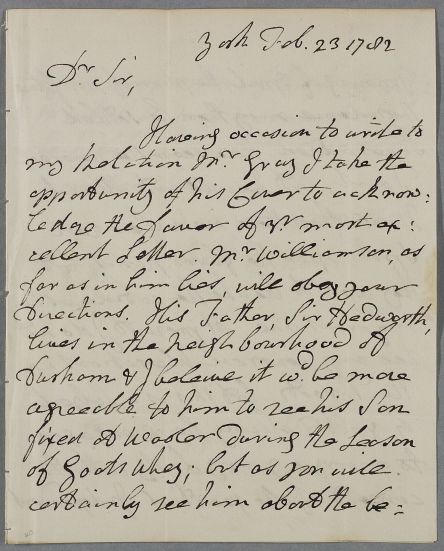 York Feb. 23 1782
Dr. Sir,
Having occasion to write to
my Relation Mr. Gray I take the
opportunity of his Cover to acknow:
ledge the favor of yr. most ex:
cellent Letter. Mr. Williamson, as
far as in him lies, will obey your
Directions. His Father, Sir Hedworth,
lives in the neighbourhood of
Durham & I beleive it wd. be more
agreeable to him to see his Son
fixed at Wooler during the season
of Goats whey; but as you will
certainly see him about the be=